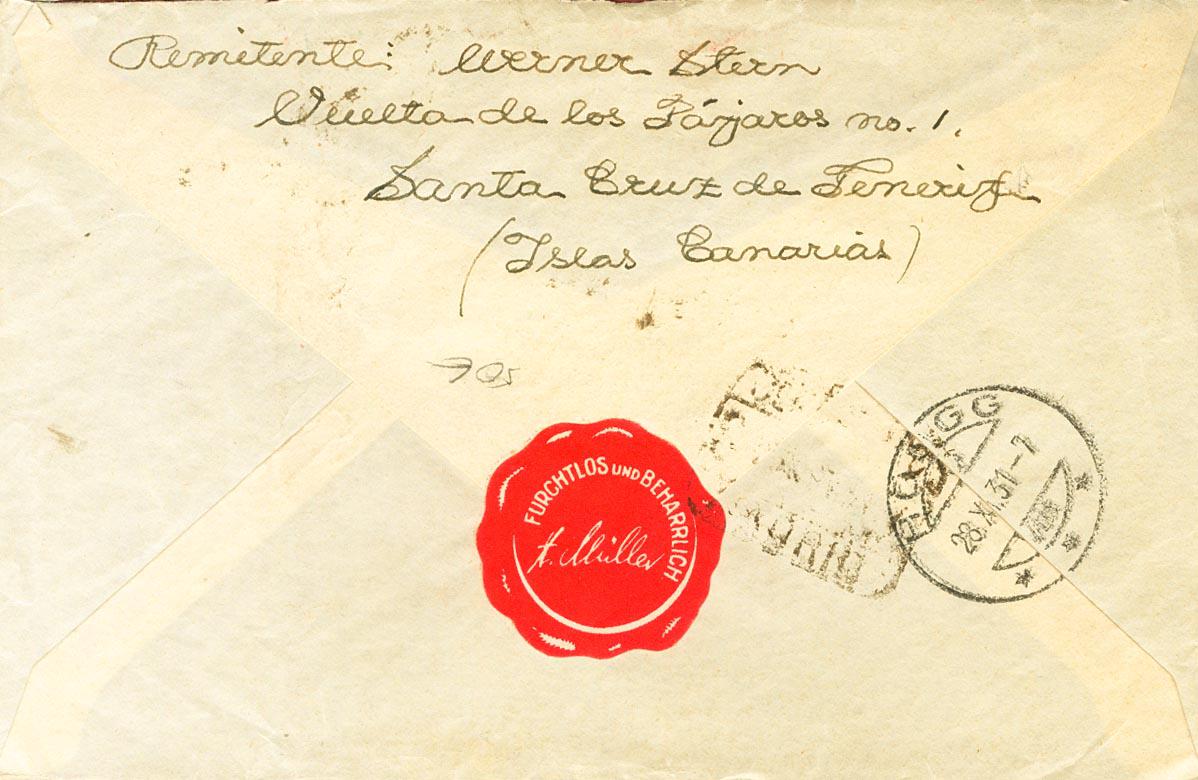 Remitente: Werner Stern
Vuelta de los Pájaros no. 1.
Santa Cruz de Tenerife
(Islas Canarias)
FURCHTLOS UND BEHARRLICH
A. Müller
28.XI.31-7